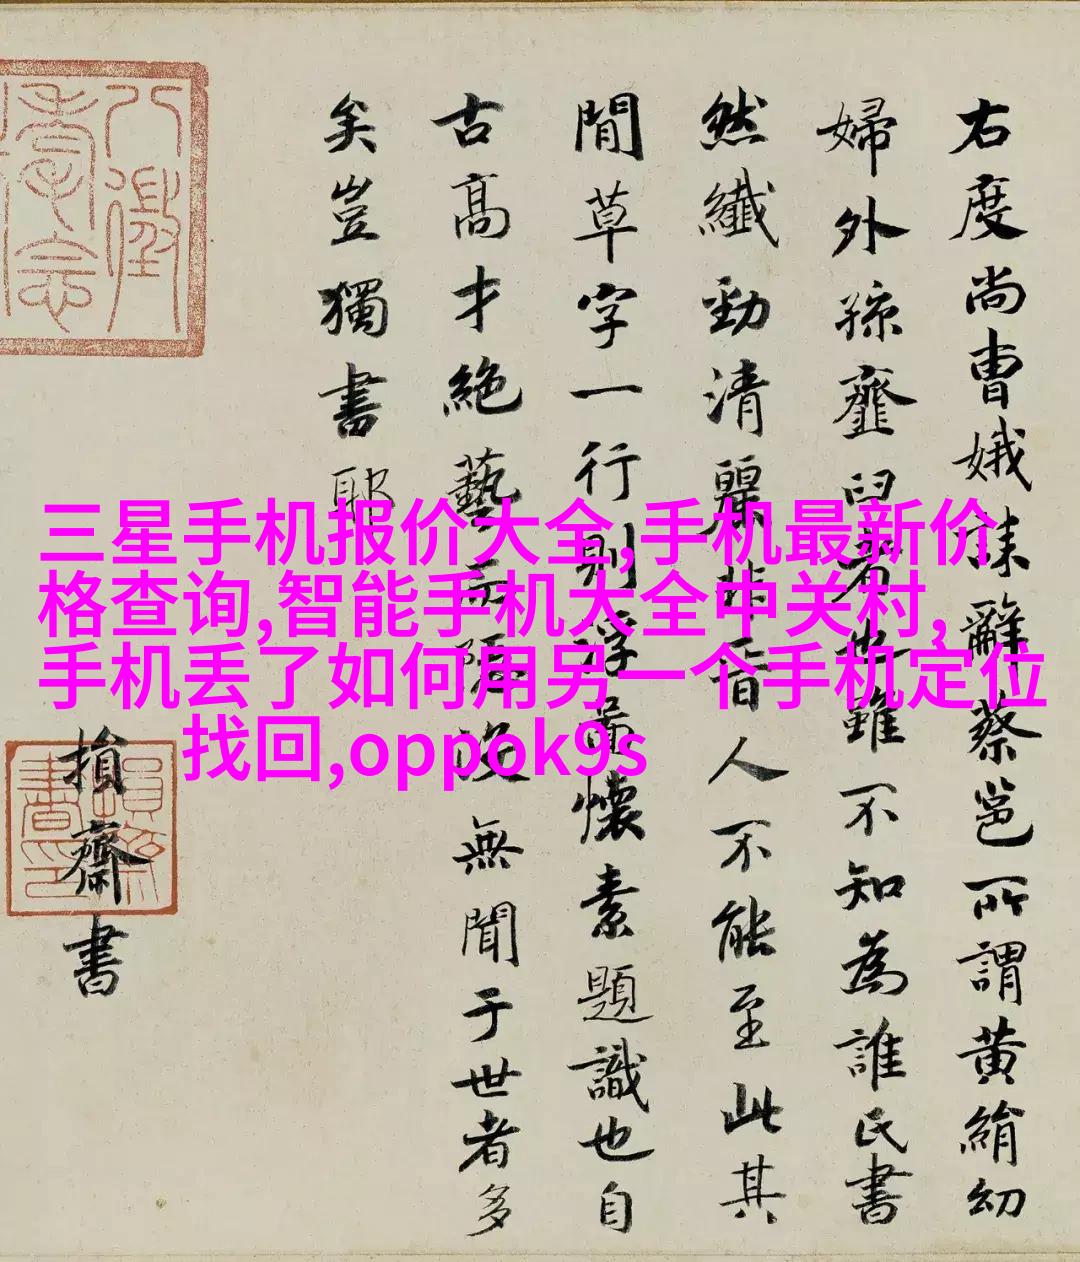 右度尚曹娥誄辭蔡邕所謂黃絹幼
婦外孫齏臼者也雖不知為誰氏書
然纖勁清麗非晉人不能至此其
間草字一行則浮圖懷素題識也自
古高才絕藝而隱沒無聞于世者多
矣豈獨書耶
損齋書
損齋書印
三星手机报价大全,手机最新价
格查询,智能手机大全中关村,
手机丢了如何用另一个手机定位
找回,oppok9s